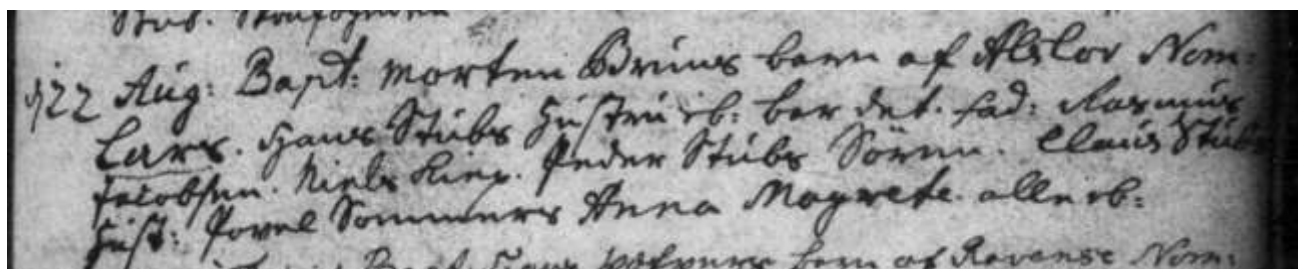 d 22 Aug: Bapt: Morten Bruns barn af Alslov Nom:
Lars. Hans Stubs Hustru ib: bar det. fad: Rasmus
Jacobsen. Niels King. Peder Stubs Sören. Claus Stubs
Hust: Povel Sommers Anna Magrete. alle ib:
Bapt. Hans barn af Ravense Nom: